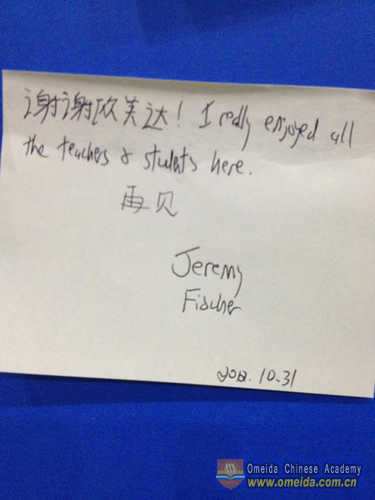 谢谢欧美达! I really enjoyed all
the teachers & students here.
再见
Jeremy
Fischer
2012.10.31
Omeida Chinese Academy
www.omeida.com.cn